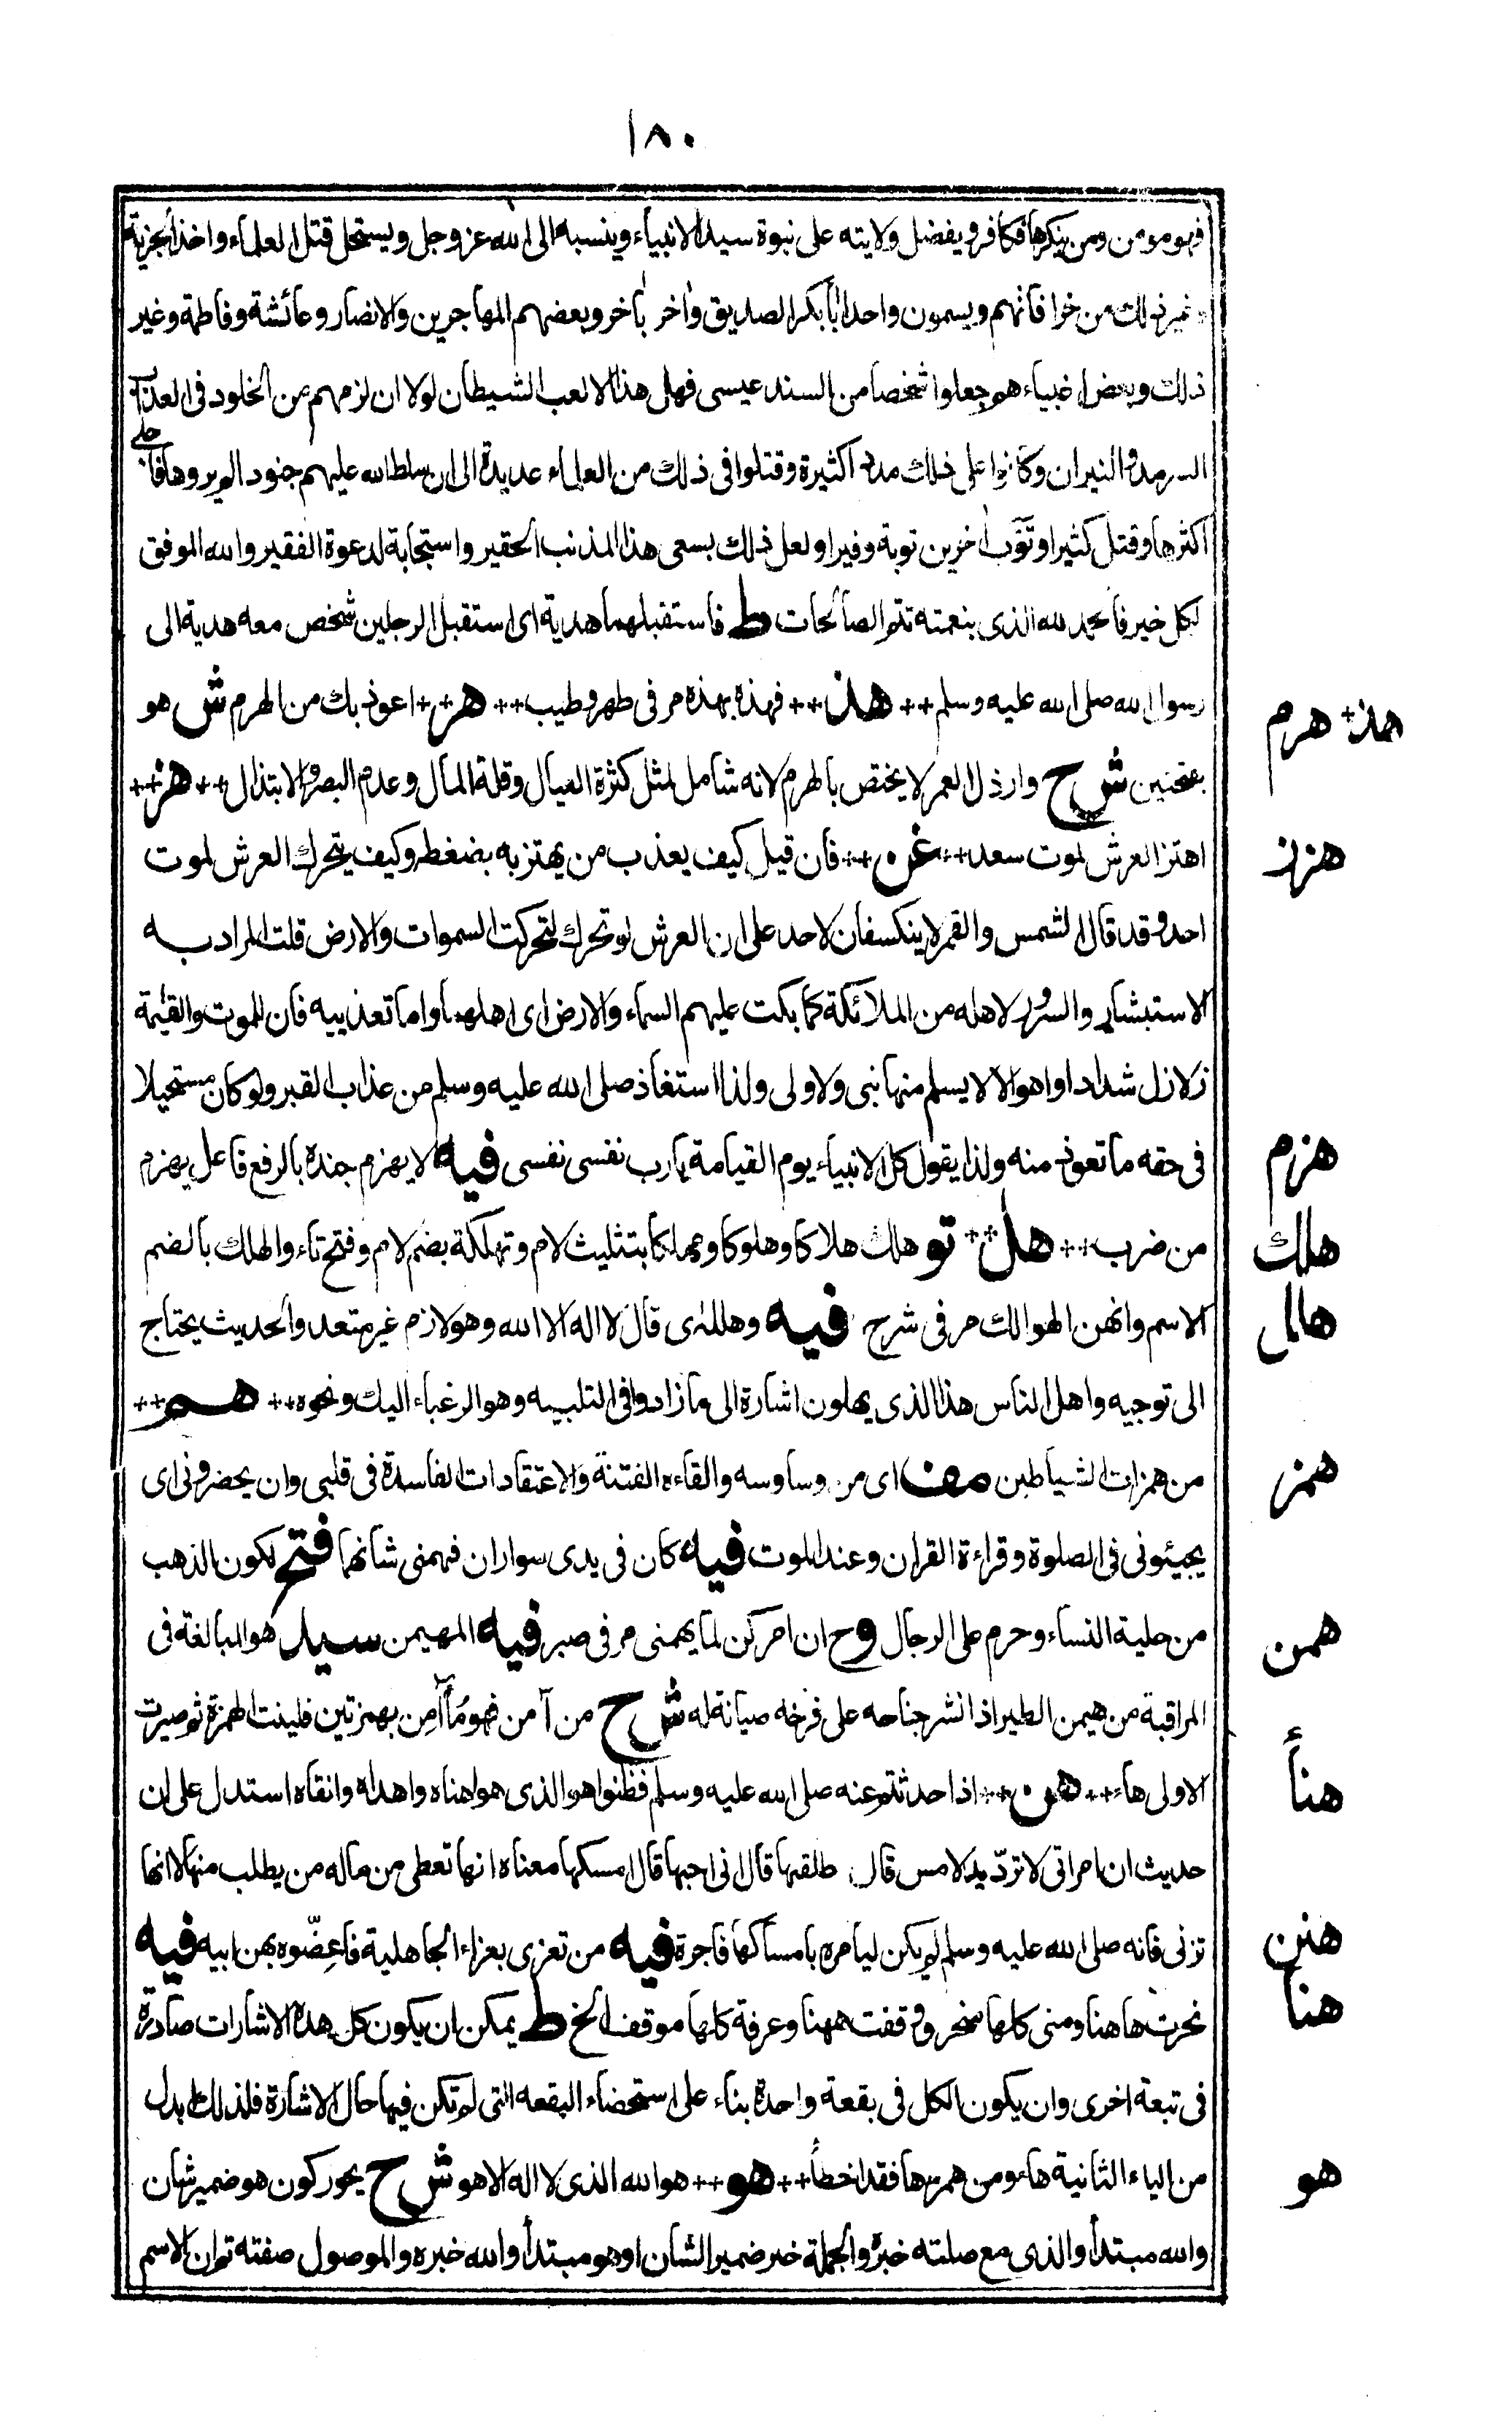 ١٨٠
فهو مومن ومن ينكرها فكافر ويفضل ولايته على نبوة سيد الانبياء وينسبه الى الله عز وجل ويستحل قتل العلماء واخذ الجزية
وغير ذلك من خرافاتهم ويسمون واحدا بأبا بكر الصديق وآخر بآخر وبعضهم المهاجرين والانصار وعائشة وفاطمة وغير
ذلك وبعض اغبياء هم جعلوا شخصا من السند عيسى فهل هذا الا لعب الشيطان لولا ان لزمهم من الخلود في العذاب
السرمد والنيران وكانوا على ذلك مددا كثيرة وقتلوا في ذلك من العلماء عديدة الى ان سلط الله عليهم جنود الم يروها فاجلى
اكثرها وقتل كثيرا وتوّب آخرين توبة وفيرا ولعل ذلك بسعى هذا المذنب الحقير واستجابة لدعوة الفقير والله الموفق
لكل خير فالحمد لله الذى بنعمته تتم الصالحات ط فاستقبلهما هدية اى استقبل الرجلين شخص معه هدية الى
رسول الله صلى الله عليه وسلم ++ هذ ++ فهذه بهذه مر فى طهر وطيب ++ هر ++ اعوذ بك من الهرم ش هو
بفتحتين ش ح وارذل العمر لا يختص بالهرم لانه شامل لمثل كثرة العيال وقلة المال وعدم البصر والابتذال ++ هز ++
اهتز العرش لموت سعد ++ غن ++ فان قيل كيف يعذب من يهتز به بضغطه وكيف يتحرك العرش لموت
احد وقد قال الشمس والقمر لا ينكسفان لاحد على ان العرش لو تحرك لتحركت السموات والارض قلت المراد به
الاستبشار والسرور لاهله من الملائكة كما بكت عليهم السماء والارض اى اهلهما واما تعذيبه فان للموت والقيمة
زلازل شدادا واهوالا لا يسلم منها نبى ولا ولى ولذا استعاذ صلى الله عليه وسلم من عذاب القبر ولو كان مستحيلا
فى حقه ما تعوذ منه ولذا يقول كل الانبياء يوم القيامة يا رب نفسى نفسى فيه لا يهزم جنده بالرفع فاعل يهزم
من ضرب ++ هل ++ تو هلك هلاكا وهلوكا ومهلكا بتثليث لام وتهلكة بضم لام وفتح تاء والهلك بالضم
الاسم وانهن الهوالك مر فى شرح فيه وهلله اى قال لا اله الا الله وهو لازم غير متعد والحديث يحتاج
الى توجيه واهل الناس هذا الذى يهلون اشارة الى ما زادوا فى التلبيه وهو الرغباء اليك ونحوه ++ هم ++
من همزات الشياطين مف اى من وساوسه والقاءه الفتنة والاعتقادات الفاسدة فى قلبى وان يحضرونى اى
يجيئونى فى الصلوة وقراءة القران وعند الموت فيه كان فى يدى سواران فهمنى شانهما فتح لكون الذهب
من حلية النساء وحرم على الرجال وح ان امركن لما يهمنى مر فى صبر فيه المهيمن سيد هو المبالغة فى
المراقبة من هيمن الطير اذا نشر جناحه على فرخه صيانة له ش ح من آمن فهو مُأَأْمِن بهمزتين فلينت الهمزة ثم صيرت
الاولى هاء ++ هن ++ اذا حدثتم عنه صلى الله عليه وسلم فظنوا هو الذى هو اهناه واهداه وانقاه استدل على ان
حديث ان امراتى لا تردّ يد لامس قال طلقها قال انى احبها قال امسكها معناه انها تعطى من ماله من يطلب منها لا انها
تزنى فانه صلى الله عليه وسلم لم يكن ليامره بامساكها فاجرة فيه من تعزى بعزاء الجاهلية فاعِضّوه بهن ابيه فيه
نحرت هاهنا ومنى كلها منحر ووقفت ههنا وعرفة كلها موقف الخ ط يمكن ان يكون كل هذه الاشارات صادرة
فى تبعة اخرى وان يكون الكل فى بقعة واحدة بناء على استحضاء البقعه التى لم تكن فيها حال الاشارة فلذلك ابدل
من الياء الثانية هاء ومن همزها فقد اخطأ ++ هو ++ هو الله الذى لا اله الا هو ش ح يجوز كون هو ضمير شان
والله مبتدأ والذى مع صلته خبره والجملة خبر ضمير الشان او هو مبتدأ والله خبره والموصول صفته ثم ان الاسم
هذ + هرم
هزز
هزم
هلك
هلل
همز
همن
هنأ
هنن
هنا
هو